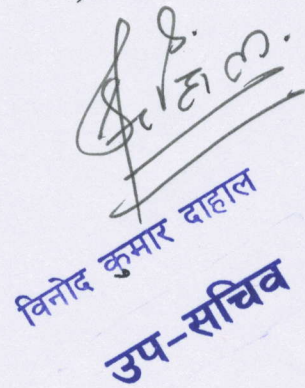 विनोद कुमार दाहाल
उप-सचिव